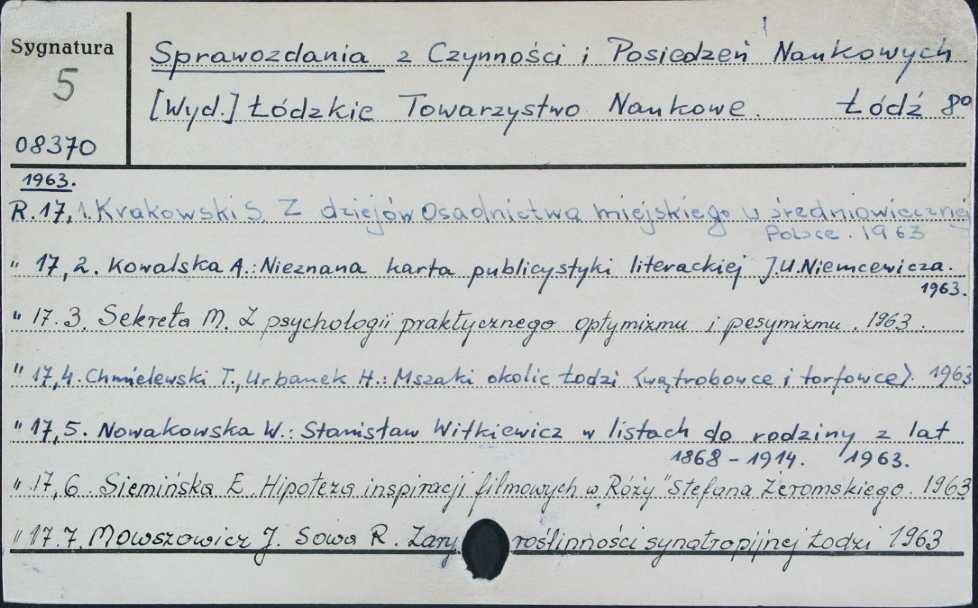 Sygnatura
5
08370
Sprawozdania z Czynności i Posiedzeń Naukowych
[Wyd.] Łódzkie Towarzystwo Naukowe. Łódź 8°
1963.
R. 17, 1. Krakowski S. Z dziejów Osadnictwa miejskiego w średniowiecznej
Polsce. 1963
" 17, 2. Kowalska A.: Nieznana karta publicystyki literackiej J.U. Niemcewicza.
1963.
" 17. 3. Sekreta M. Z psychologii praktycznego optymizmu i pesymizmu. 1963.
" 17, 4. Chmielewski T., Urbanek H.: Mszaki okolic Łodzi (wątrobowce i torfowce). 1963
" 17, 5. Nowakowska W.: Stanisław Witkiewicz w listach do rodziny z lat
1868 – 1914. 1963.
" 17, 6. Siemińska E. Hipoteza inspiracji filmowych w „Róży" Stefana Żeromskiego. 1963
" 17. 7. Mowszowicz J. Sowa R. Zary roślinności synatropijnej Łodzi 1963